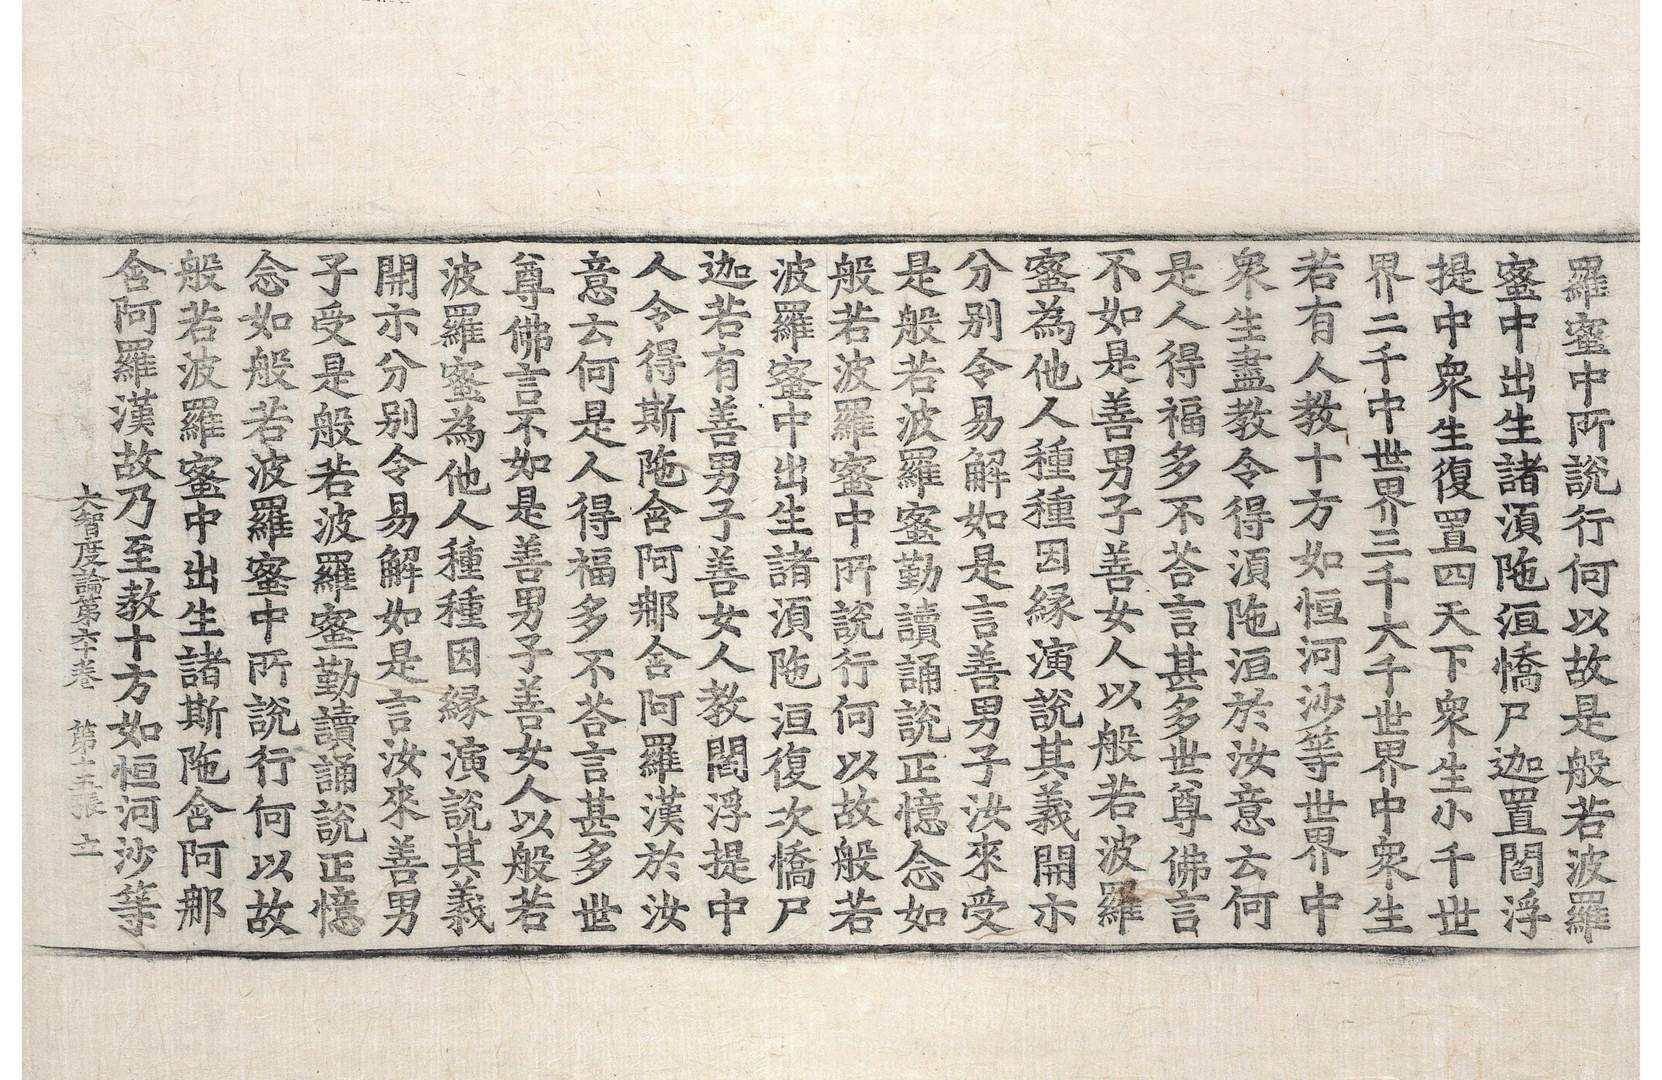 羅蜜中所說行何以故是般若波羅
蜜中出生諸湏陁洹憍尸迦置閻浮
提中衆生復置四天下衆生小千世
界二千中世界三千大千世界中衆生
若有人教十方如恒河沙等世界中
衆生盡教令得湏陁洹於汝意云何
是人得福多不荅言甚多世尊佛言
不如是善男子善女人以般若波羅
蜜為他人種種因緣演說其義開示
分別令易解如是言善男子汝來受
是般若波羅蜜勤讀誦說正憶念如
般若波羅蜜中所說行何以故般若
波羅蜜中出生諸湏陁洹復次憍尸
迦若有善男子善女人教閻浮提中
人令得斯陁含阿那含阿羅漢於汝
意云何是人得福多不荅言甚多世
尊佛言不如是善男子善女人以般若
波羅蜜為他人種種因緣演說其義
開示分別令易解如是言汝來善男
子受是般若波羅蜜勤讀誦說正憶
念如般若波羅蜜中所說行何以故
般若波羅蜜中出生諸斯陁含阿那
含阿羅漢故乃至教十方如恒河沙等
大智度論第六十卷 第十五張 士